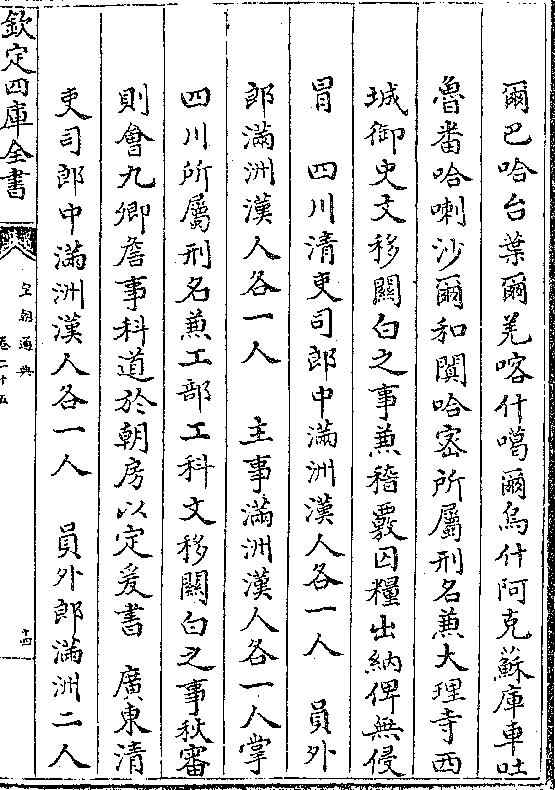 爾巴哈台葉爾羌喀什噶爾烏什阿克蘇庫車吐
魯番哈喇沙爾和闐哈宻所屬刑名兼大理寺西
城御史文移關白之事兼稽覈囚糧出納俾無侵
冒　四川清吏司郎中滿洲漢人各一人　員外
郎滿洲漢人各一人　主事滿洲漢人各一人掌
四川所屬刑名兼工部工科文移關白之事秋審
則會九卿詹事科道於朝房以定爰書　廣東清
吏司郎中滿洲漢人各一人　員外郎滿洲二人
欽定四庫全書
皇朝通典
卷二十五
十四